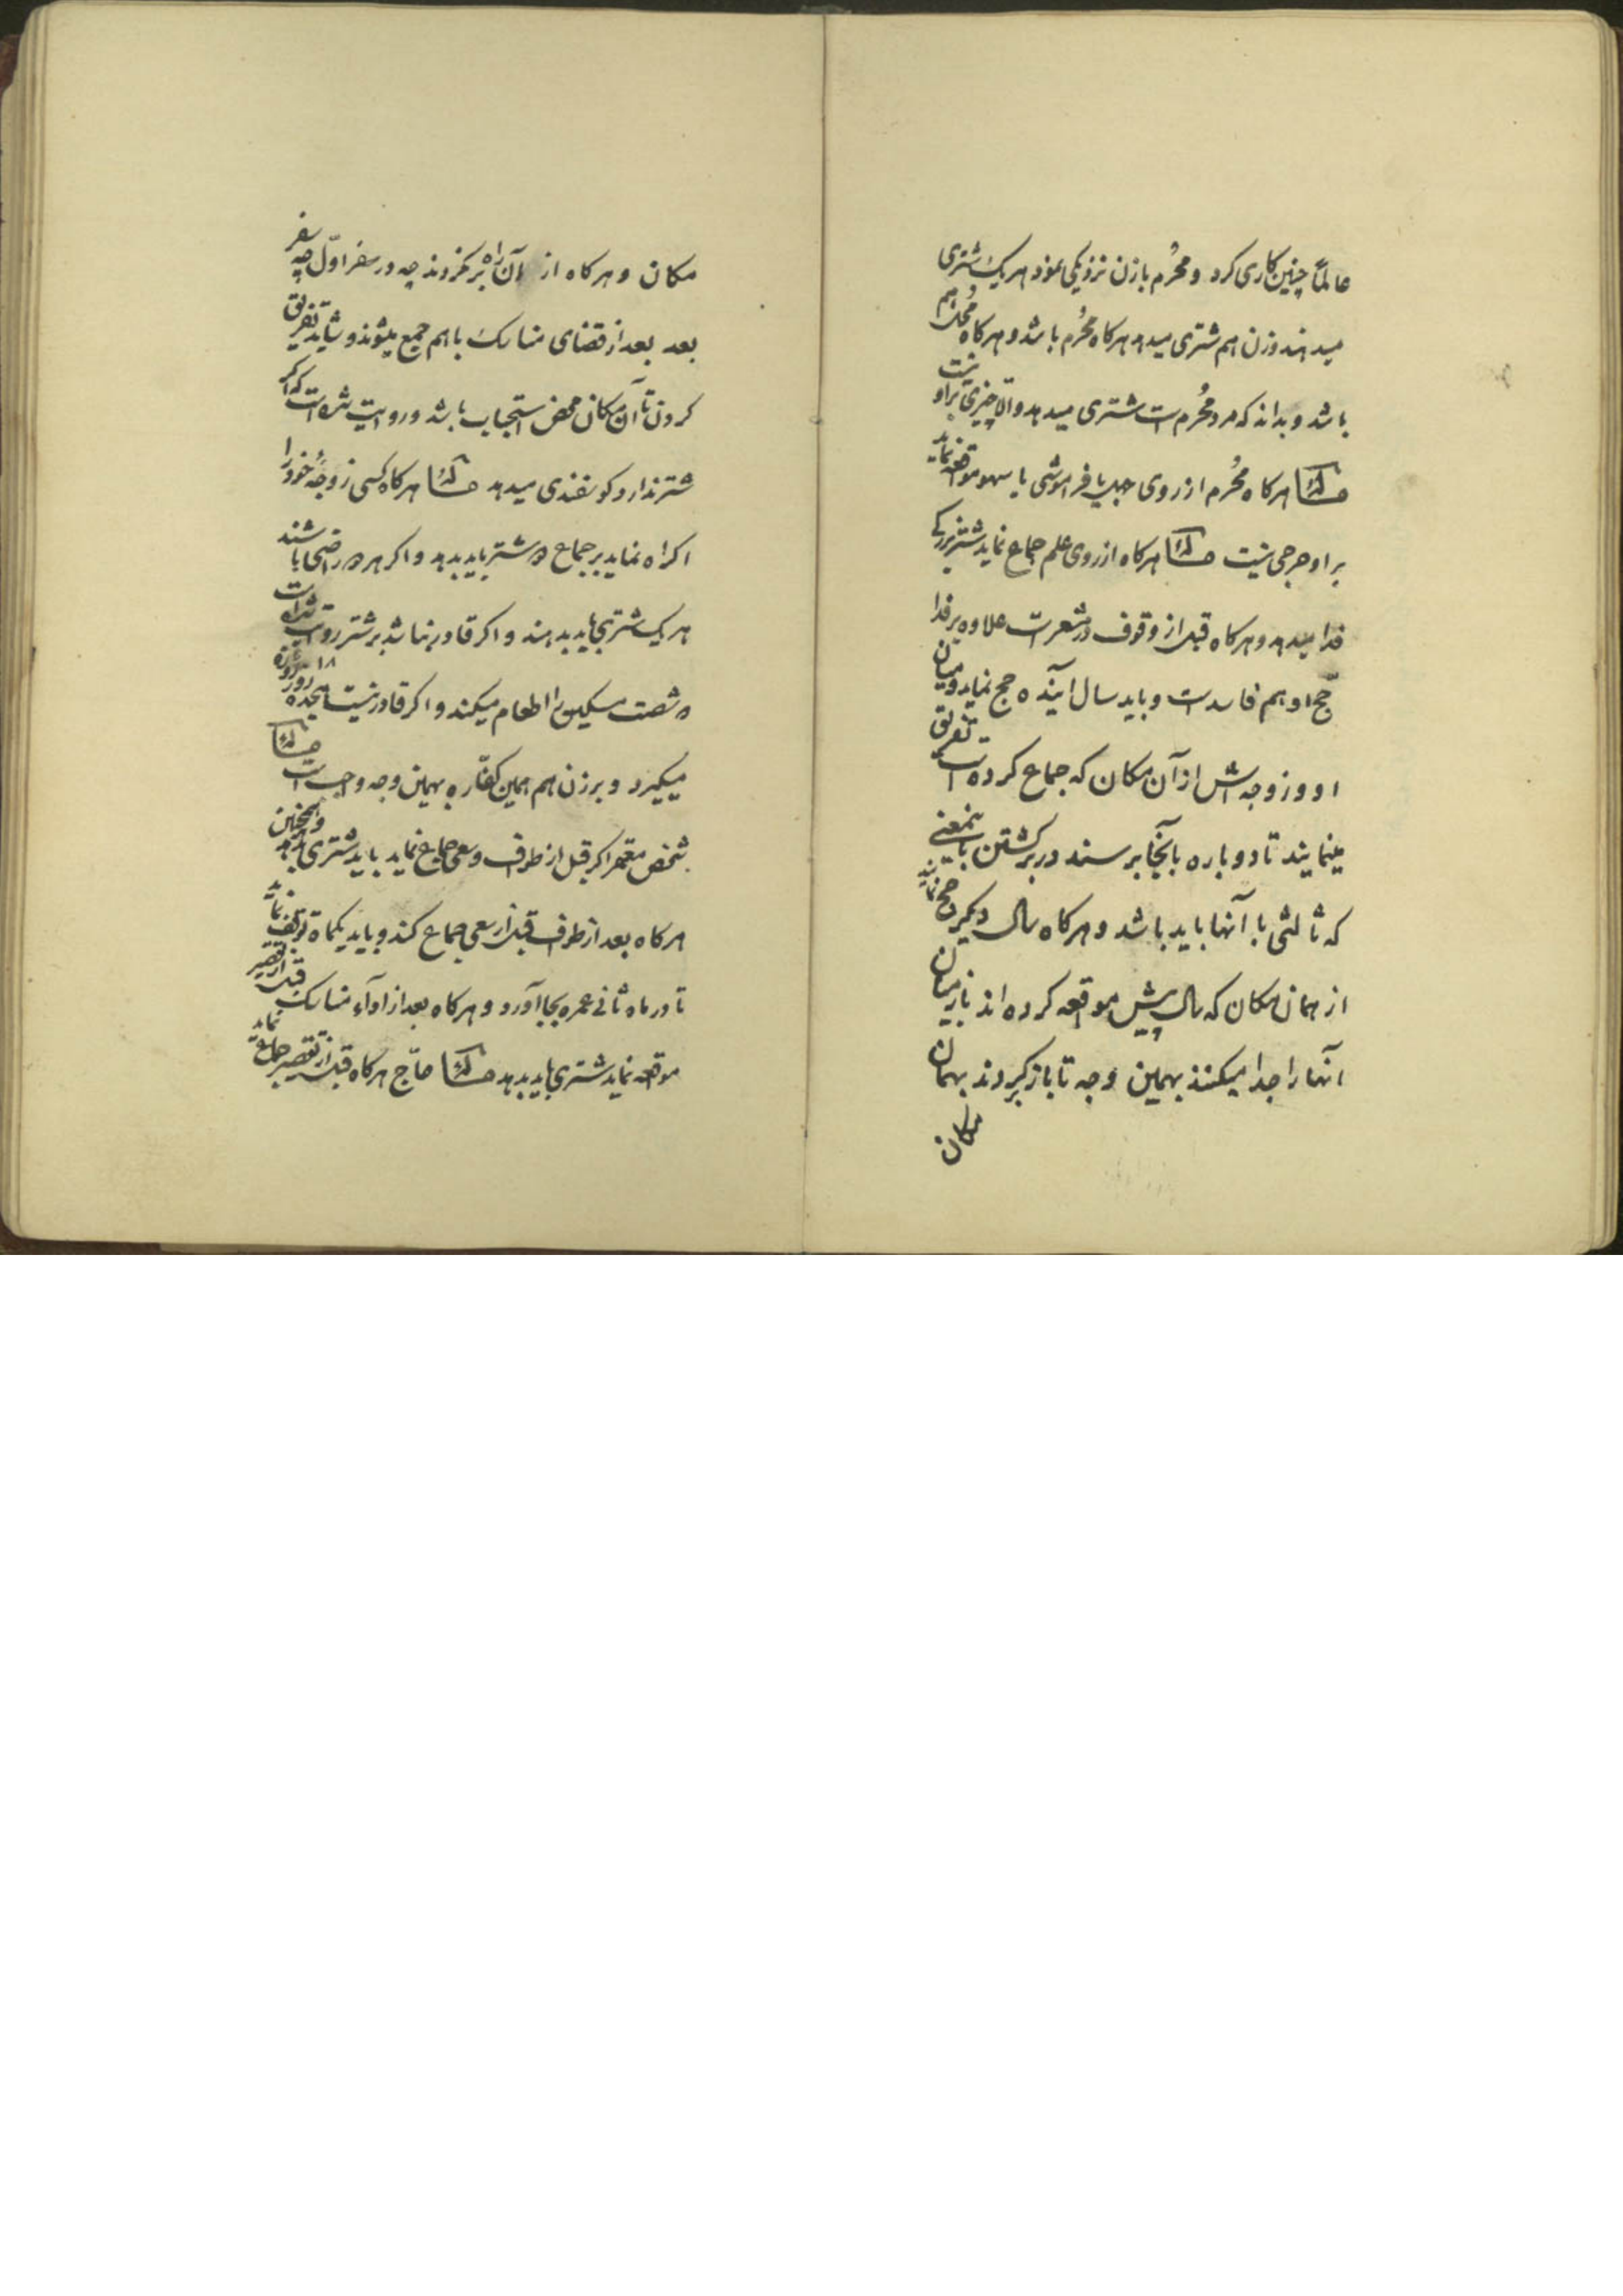 عالماً چنین کاری کرد و محُرم با زن نزدیکی نمود هر یک شتری
میدهند و زن هم شتری میدهد هرکاه محُرم باشد و هرکاه مُحل هم
باشد و بداند که مرد محُرم است شتری میدهد والا چیزی بر او نیست
مسئله هرکاه محُرم از روی جهل یا فراموشی یا سهو مواقعه نماید
بر او حرجی نیست مسئله هرکاه از روی علم جماع نماید شتر بزرکی
فدا میدهد و هرکاه قبل از وقوف در مشعر است علاوه بر فدا
حّج او هم فاسد است و باید سال آینده حج نماید و میان
او و زوجه اش از آن مکان که جماع کرده است تفریق
مینمایند تا دوباره بآنجا برسند در برکشتن باینمعنی
که ثالثی با آنها باید باشد و هرکاه سال دیکر حج نمایند
از همان مکان که سال پیش مواقعه کرده اند باز میان
آنها را جدا میکنند بهمین وجه تا باز کردند بهمان
مکان
مکان و هرکاه از آن راه برنکردند چه در سفر اوّل چه سفر
بعد بعد از قضای مناسک با هم جمع میشوند و شاید تفریق
کردن تا آن مکان محض استحباب باشد و روایت شده است که اکر
شتر ندارد کوسفندی میدهد مسئله هرکاه کسی زوجهٔ خود را
اکراه نماید بر جماع دو شتر باید بدهد و اکر هر دو راضی باشند
هر یک شتری باید بدهند و اکر قادر نباشد بر شتر روایت شده است
که شصت مسکین را اطعام میکند و اکر قادر نیست هیجده ۱۸ روز روزه
میکیرد و بر زن هم همین کفّاره بهمین وجه واجب است مسئله
شخص معتمر اکر قبل از طواف و سعی جماع نماید باید شتری بدهد و همچنین
هرکاه بعد از طواف قبل از سعی جماع کند و باید یکماه توقف نماید
تا در ماه ثانی عمره بجا آورد و هرکاه بعد از اداء مناسک قبل از تقصیر
مواقعه نماید شتری باید بدهد مسئله حاّج هرکاه قبل از تقصیر جماع نماید